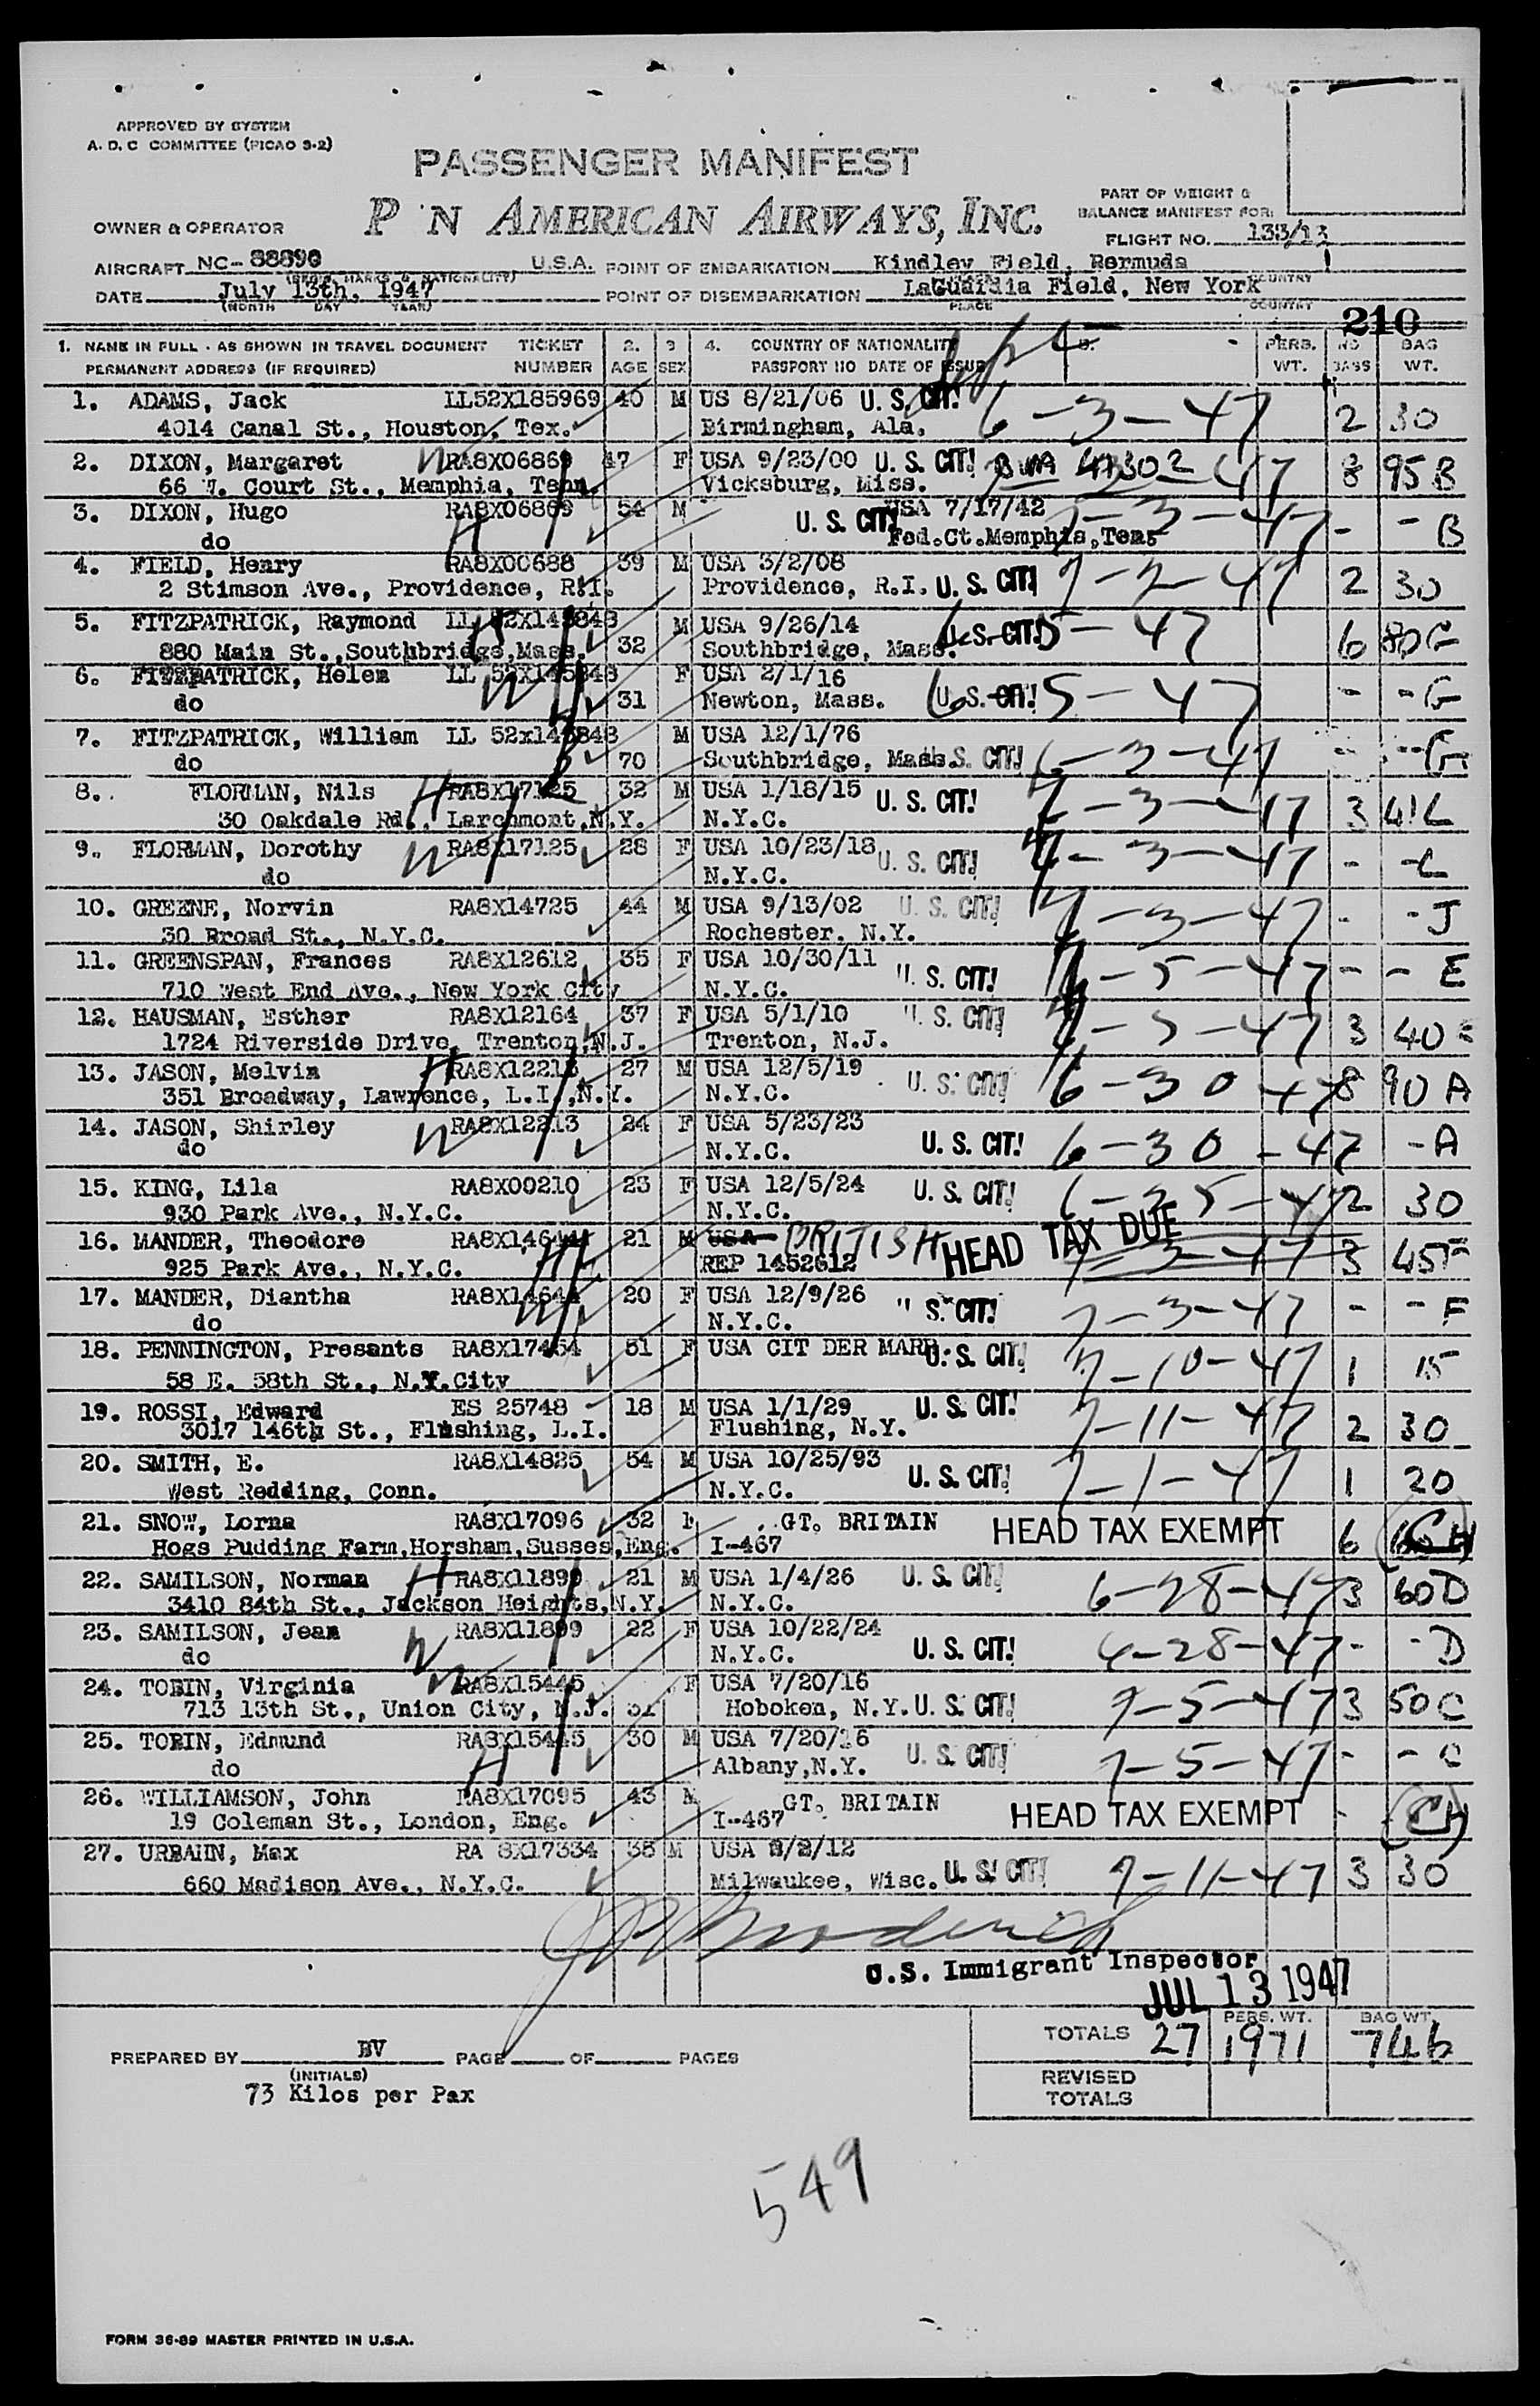 APPROVED BY SYSTEM
A. D. C COMMITTEE (PICAO S-2)
PASSENGER MANIFEST
P N AMERICAN AIRWAYS, INC.
PART OF WEIGHT &
BALANCE MANIFEST FOR:
OWNER & OPERATOR
FLIGHT NO. 133/13
AIRCRAFT NC- 88890 U.S.A. POINT OF EMBARKATION Kindley Field, Bermuda
(REG'S. MARKS & NATIONALITY) PLACE COUNTRY
DATE July 13th, 1947 POINT OF DISEMBARKATION LaGuardia Field, New York
(MONTH DAY YEAR) PLACE COUNTRY
210
1. NAME IN FULL - AS SHOWN IN TRAVEL DOCUMENT TICKET 2. 3 4. COUNTRY OF NATIONALITY 5. PERS. NO BAG
PERMANENT ADDRESS (IF REQUIRED) NUMBER AGE SEX PASSPORT NO DATE OF ISSUE WT. BAGS WT.
1. ADAMS, Jack LL52X185969 40 M US 8/21/06 U. S. CIT! 6-3-47 2 30
4014 Canal St., Houston, Tex. Birmingham, Ala.
2. DIXON, Margaret W RA8X06869 47 F USA 9/23/00 U. S. CIT! 47 8 95 B
66 Court St., Memphia, Tenn. Vicksburg, Miss.
3. DIXON, Hugo RA8X06869 54 M U. S. CIT! USA 7/17/42 7-3-47 - - B
do H Fed.Ct.Memphis,Ten.
4. FIELD, Henry RA8X00688 39 M USA 3/2/08
2 Stimson Ave., Providence, R.I. Providence, R.I. U. S. CIT! 7-2-47 2 30
5. FITZPATRICK, Raymond LL 52X145848 M USA 9/26/14 U. S. CIT! 6-5-47 6 80 G
880 Main St.,Southbridge,Mass. 32 Southbridge, Mass.
6. FITZPATRICK, Helen LL 52X145848 F USA 2/1/16
do W 31 Newton, Mass. U. S. CIT! 6-5-47 - - G
7. FITZPATRICK, William LL 52x145848 M USA 12/1/76
do 70 Southbridge, Mass. U. S. CIT! 6-3-47 - - G
8. FLORMAN, Nils H RA8X17125 32 M USA 1/18/15 U. S. CIT! 7-3-47 3 41 L
30 Oakdale Rd., Larchmont,N.Y. N.Y.C.
9. FLORMAN, Dorothy W RA8X17125 28 F USA 10/23/18 U. S. CIT! 7-3-47 - - L
do N.Y.C.
10. GREENE, Norvin RA8X14725 44 M USA 9/13/02 U. S. CIT! 7-3-47 - - J
30 Broad St., N.Y.C. Rochester, N.Y.
11. GREENSPAN, Frances RA8X12612 35 F USA 10/30/11 U. S. CIT! 7-5-47 - - E
710 West End Ave., New York City N.Y.C.
12. HAUSMAN, Esther RA8X12164 37 F USA 5/1/10 U. S. CIT! 7-5-47 3 40 E
1724 Riverside Drive, Trenton,N.J. Trenton, N.J.
13. JASON, Melvin H RA8X12213 27 M USA 12/5/19 U. S. CIT! 6-30-47 8 90 A
351 Broadway, Lawrence, L.I.,N.Y. N.Y.C.
14. JASON, Shirley W RA8X12213 24 F USA 5/23/23 U. S. CIT! 6-30-47 - A
do N.Y.C.
15. KING, Lila RA8X00210 23 F USA 12/5/24 U. S. CIT! 6-25-47 2 30
930 Park Ave., N.Y.C. N.Y.C.
16. MANDER, Theodore RA8X14644 21 M USA BRITISH HEAD TAX DUE 7-3-47 3 45 F
925 Park Ave., N.Y.C. H REP 1452612
17. MANDER, Diantha RA8X14644 20 F USA 12/9/26 " S. CIT! 7-3-47 - - F
do W N.Y.C.
18. PENNINGTON, Presants RA8X17454 51 F USA CIT DER MARR U. S. CIT! 7-10-47 1 15
58 E. 58th St., N.Y.City
19. ROSSI, Edward ES 25748 18 M USA 1/1/29 U. S. CIT! 7-11-47 2 30
3017 146th St., Flushing, L.I. Flushing, N.Y.
20. SMITH, E. RA8X14825 54 M USA 10/25/93 U. S. CIT! 7-1-47 1 20
West Redding, Conn. N.Y.C.
21. SNOW, Lorna RA8X17096 32 F GT. BRITAIN HEAD TAX EXEMPT 6 H
Hogs Pudding Farm,Horsham,Susses,Eng. I-467
22. SAMILSON, Norman H RA8X11899 21 M USA 1/4/26 U. S. CIT! 6-28-47 3 60 D
3410 84th St., Jackson Heights,N.Y. N.Y.C.
23. SAMILSON, Jean W RA8X11899 22 F USA 10/22/24 U. S. CIT! 6-28-47 - - D
do N.Y.C.
24. TOBIN, Virginia W RA8X15445 F USA 7/20/16
713 13th St., Union City, N.J. 31 Hoboken, N.Y. U. S. CIT! 7-5-47 3 50 C
25. TOBIN, Edmund RA8X15445 30 M USA 7/20/16 U. S. CIT! 7-5-47 - - C
do H Albany,N.Y.
26. WILLIAMSON, John RA8X17095 43 M GT. BRITAIN HEAD TAX EXEMPT - H
19 Coleman St., London, Eng. I-467
27. URBAHN, Max RA 8X17334 35 M USA 2/2/12 7-11-47 3 30
660 Madison Ave., N.Y.C. Milwaukee, Wisc. U. S. CIT!
U.S. Immigrant Inspector
JUL 13 1947
TOTALS 27 PERS. WT. 1971 BAG WT. 746
PREPARED BY BV PAGE OF PAGES
(INITIALS)
REVISED
TOTALS
73 Kilos per Pax
549
FORM 36-89 MASTER PRINTED IN U.S.A.